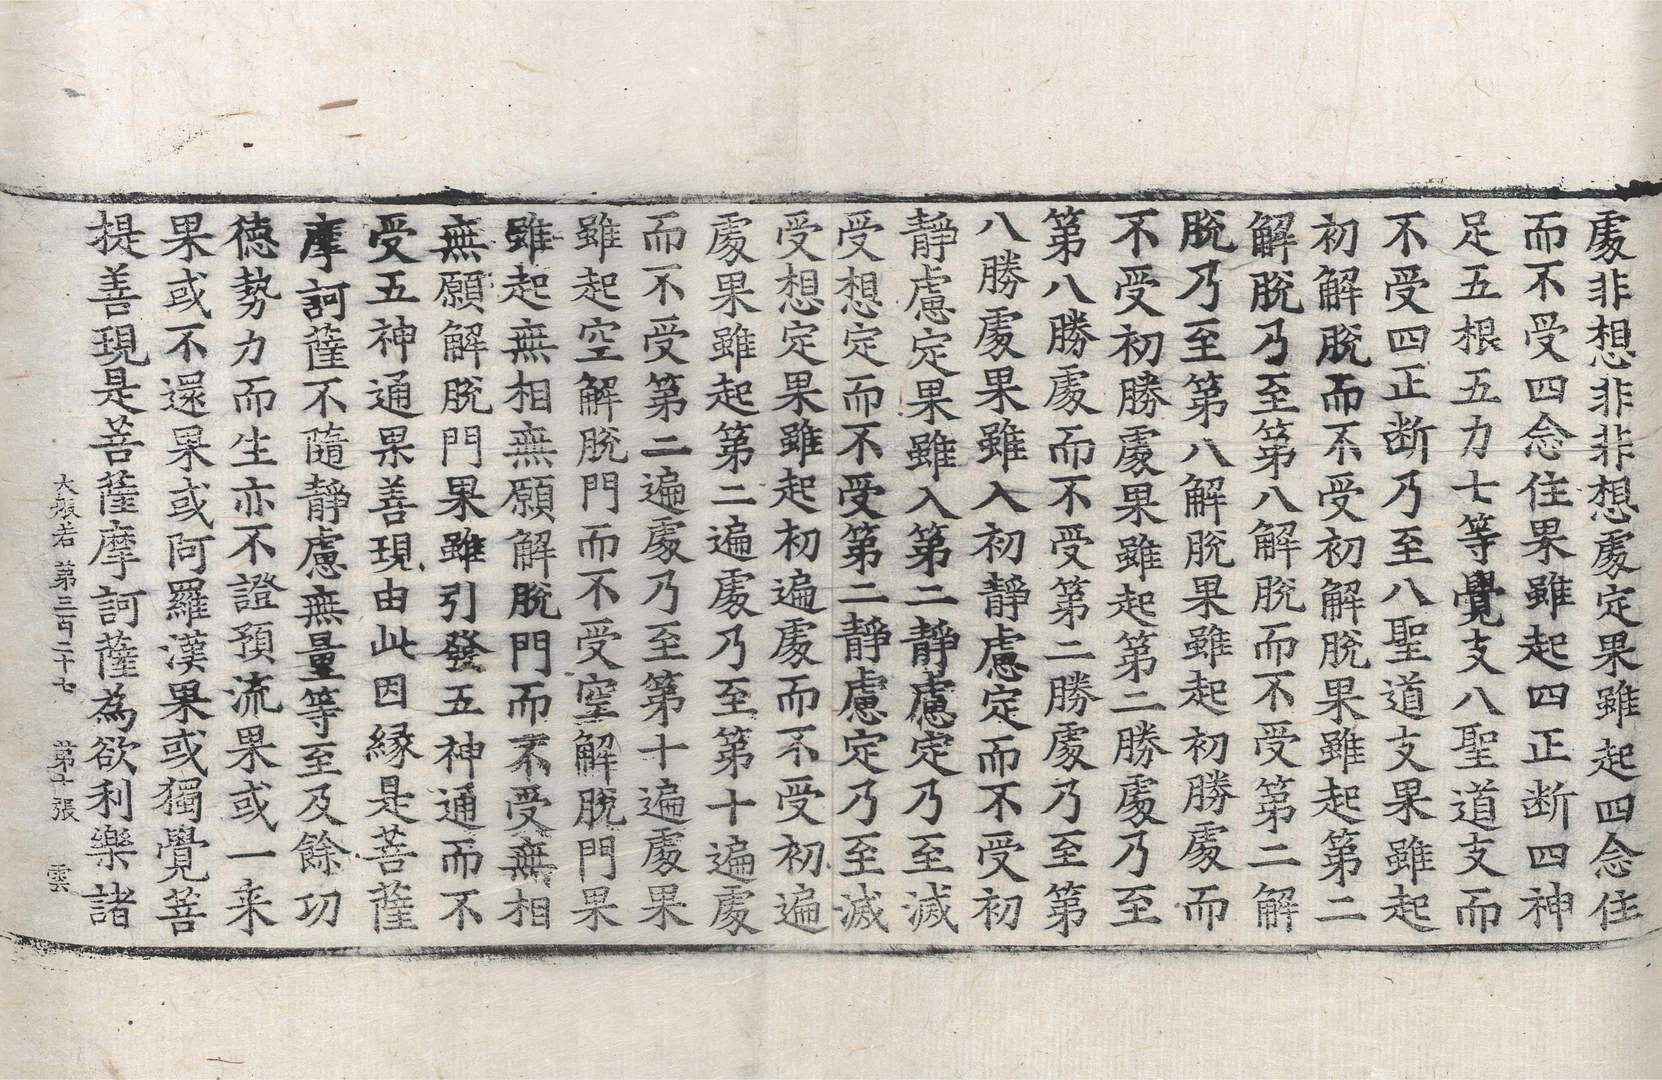 處非想非非想處定果雖起四念住
而不受四念住果雖起四正断四神
足五根五力七等覺支八聖道支而
不受四正断乃至八聖道支果雖起
初解脫而不受初解脫果雖起第二
解脫乃至第八解脫而不受第二解
脫乃至第八解脫果雖起初勝處而
不受初勝處果雖起第二勝處乃至
第八勝處而不受第二勝處乃至第
八勝處果雖入初靜慮定而不受初
靜慮定果雖入第二靜慮定乃至滅
受想定而不受第二靜慮定乃至滅
受想定果雖起初遍處而不受初遍
處果雖起第二遍處乃至第十遍處
而不受第二遍處乃至第十遍處果
雖起空解脫門而不受空解脫門果
雖起無相無願解脫門而不受無相
無願解脫門果雖引發五神通而不
受五神通果善現由此因縁是菩薩
摩訶薩不隨靜慮無量等至及餘功
德勢力而生亦不證預流果或一来
果或不還果或阿羅漢果或獨覺菩
提善現是菩薩摩訶薩為欲利樂諸
大般若 第三百二十七 第十張 雲